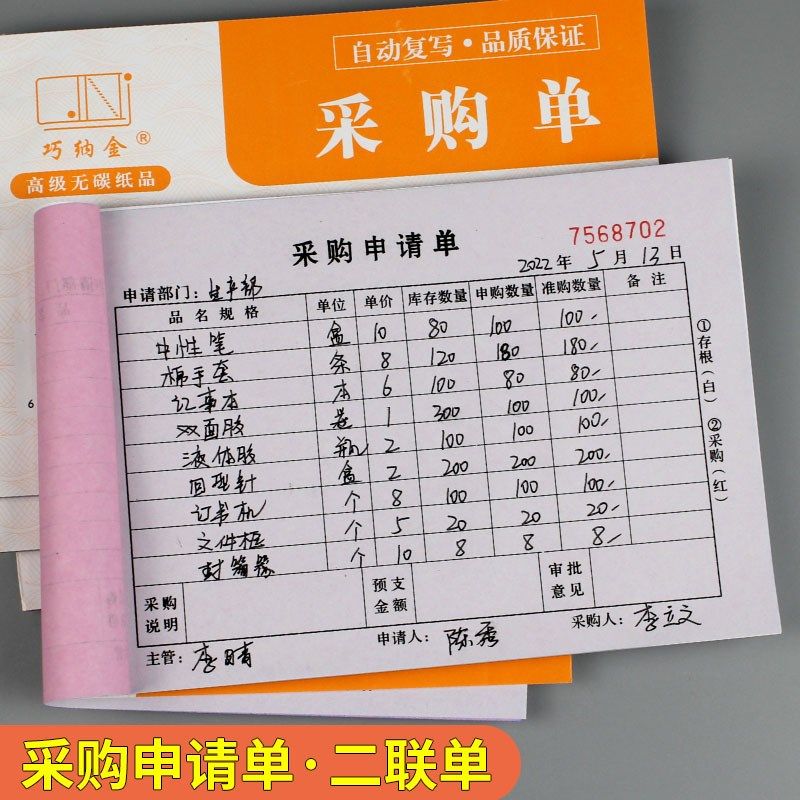 自动复写·品质保证
采购单
巧纳金®
高级无碳纸品
7568702
采购申请单
2022年 5月 13日
申请部门：生产部
品名规格 单位 单价 库存数量 申购数量 准购数量 备注
中性笔 盒 10 80 100 100-
棉手套 条 8 120 180 180-
记事本 本 6 100 80 80-
双面胶 卷 1 300 100 100-
液体胶 瓶 2 100 100 100-
回型针 盒 2 200 200 200-
订书机 个 8 100 100 100-
文件框 个 5 20 20 20-
封箱 个 10 8 8 8-
采购说明 预支金额 审批意见
主管： 李晴 申请人： 陈秀 采购人： 李立文
①存根（白） ②采购（红）
6
采购申请单·二联单